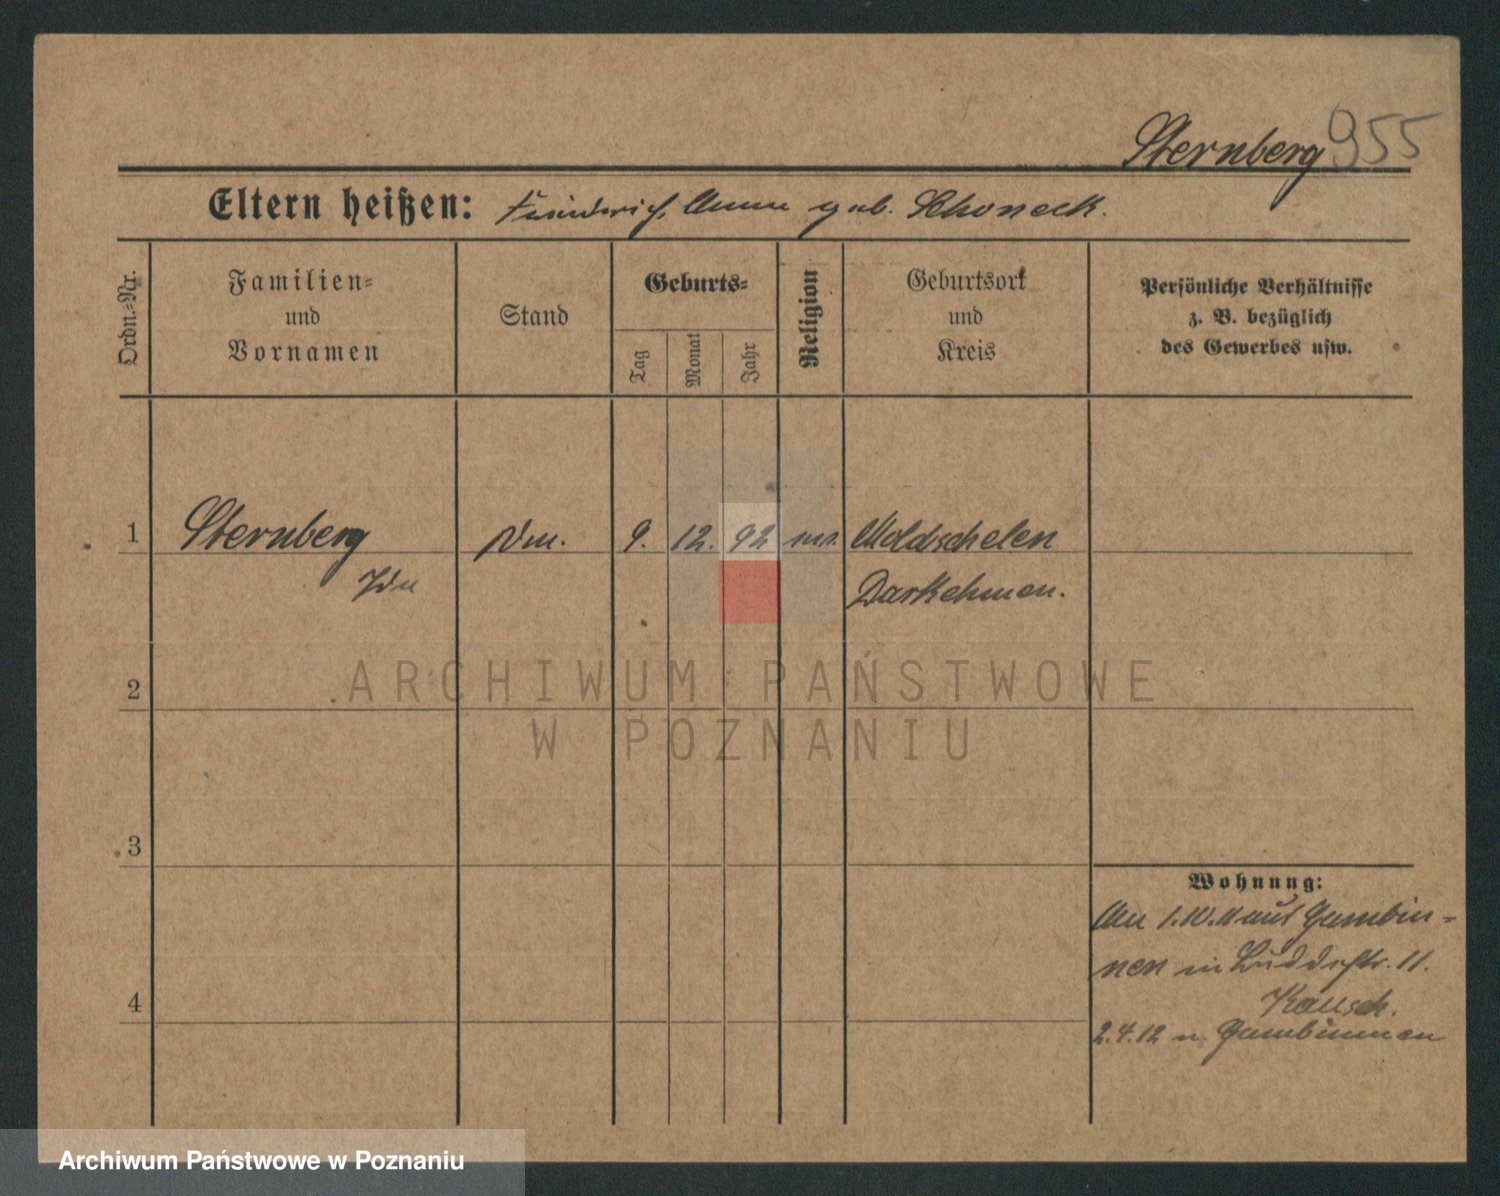 Sternberg 955
Eltern heißen: Friedrich, Anna geb. Schoneck.
Ordn.-Nr.
Familien- und Vornamen
Stand
Geburts-
Tag
Monat
Jahr
Religion
Geburtsort und Kreis
Persönliche Verhältnisse
z. B. bezüglich
des Gewerbes usw.
1 Sternberg 9. 12. 92
Ida Darkehmen.
2
ARCHIWUM PAŃSTWOWE
W POZNANIU
3
Wohnung:
Am 1.10.11 aus Gumbin-
nen in 11.
4
2.4.12 n. Gumbinnen
Archiwum Państwowe w Poznaniu